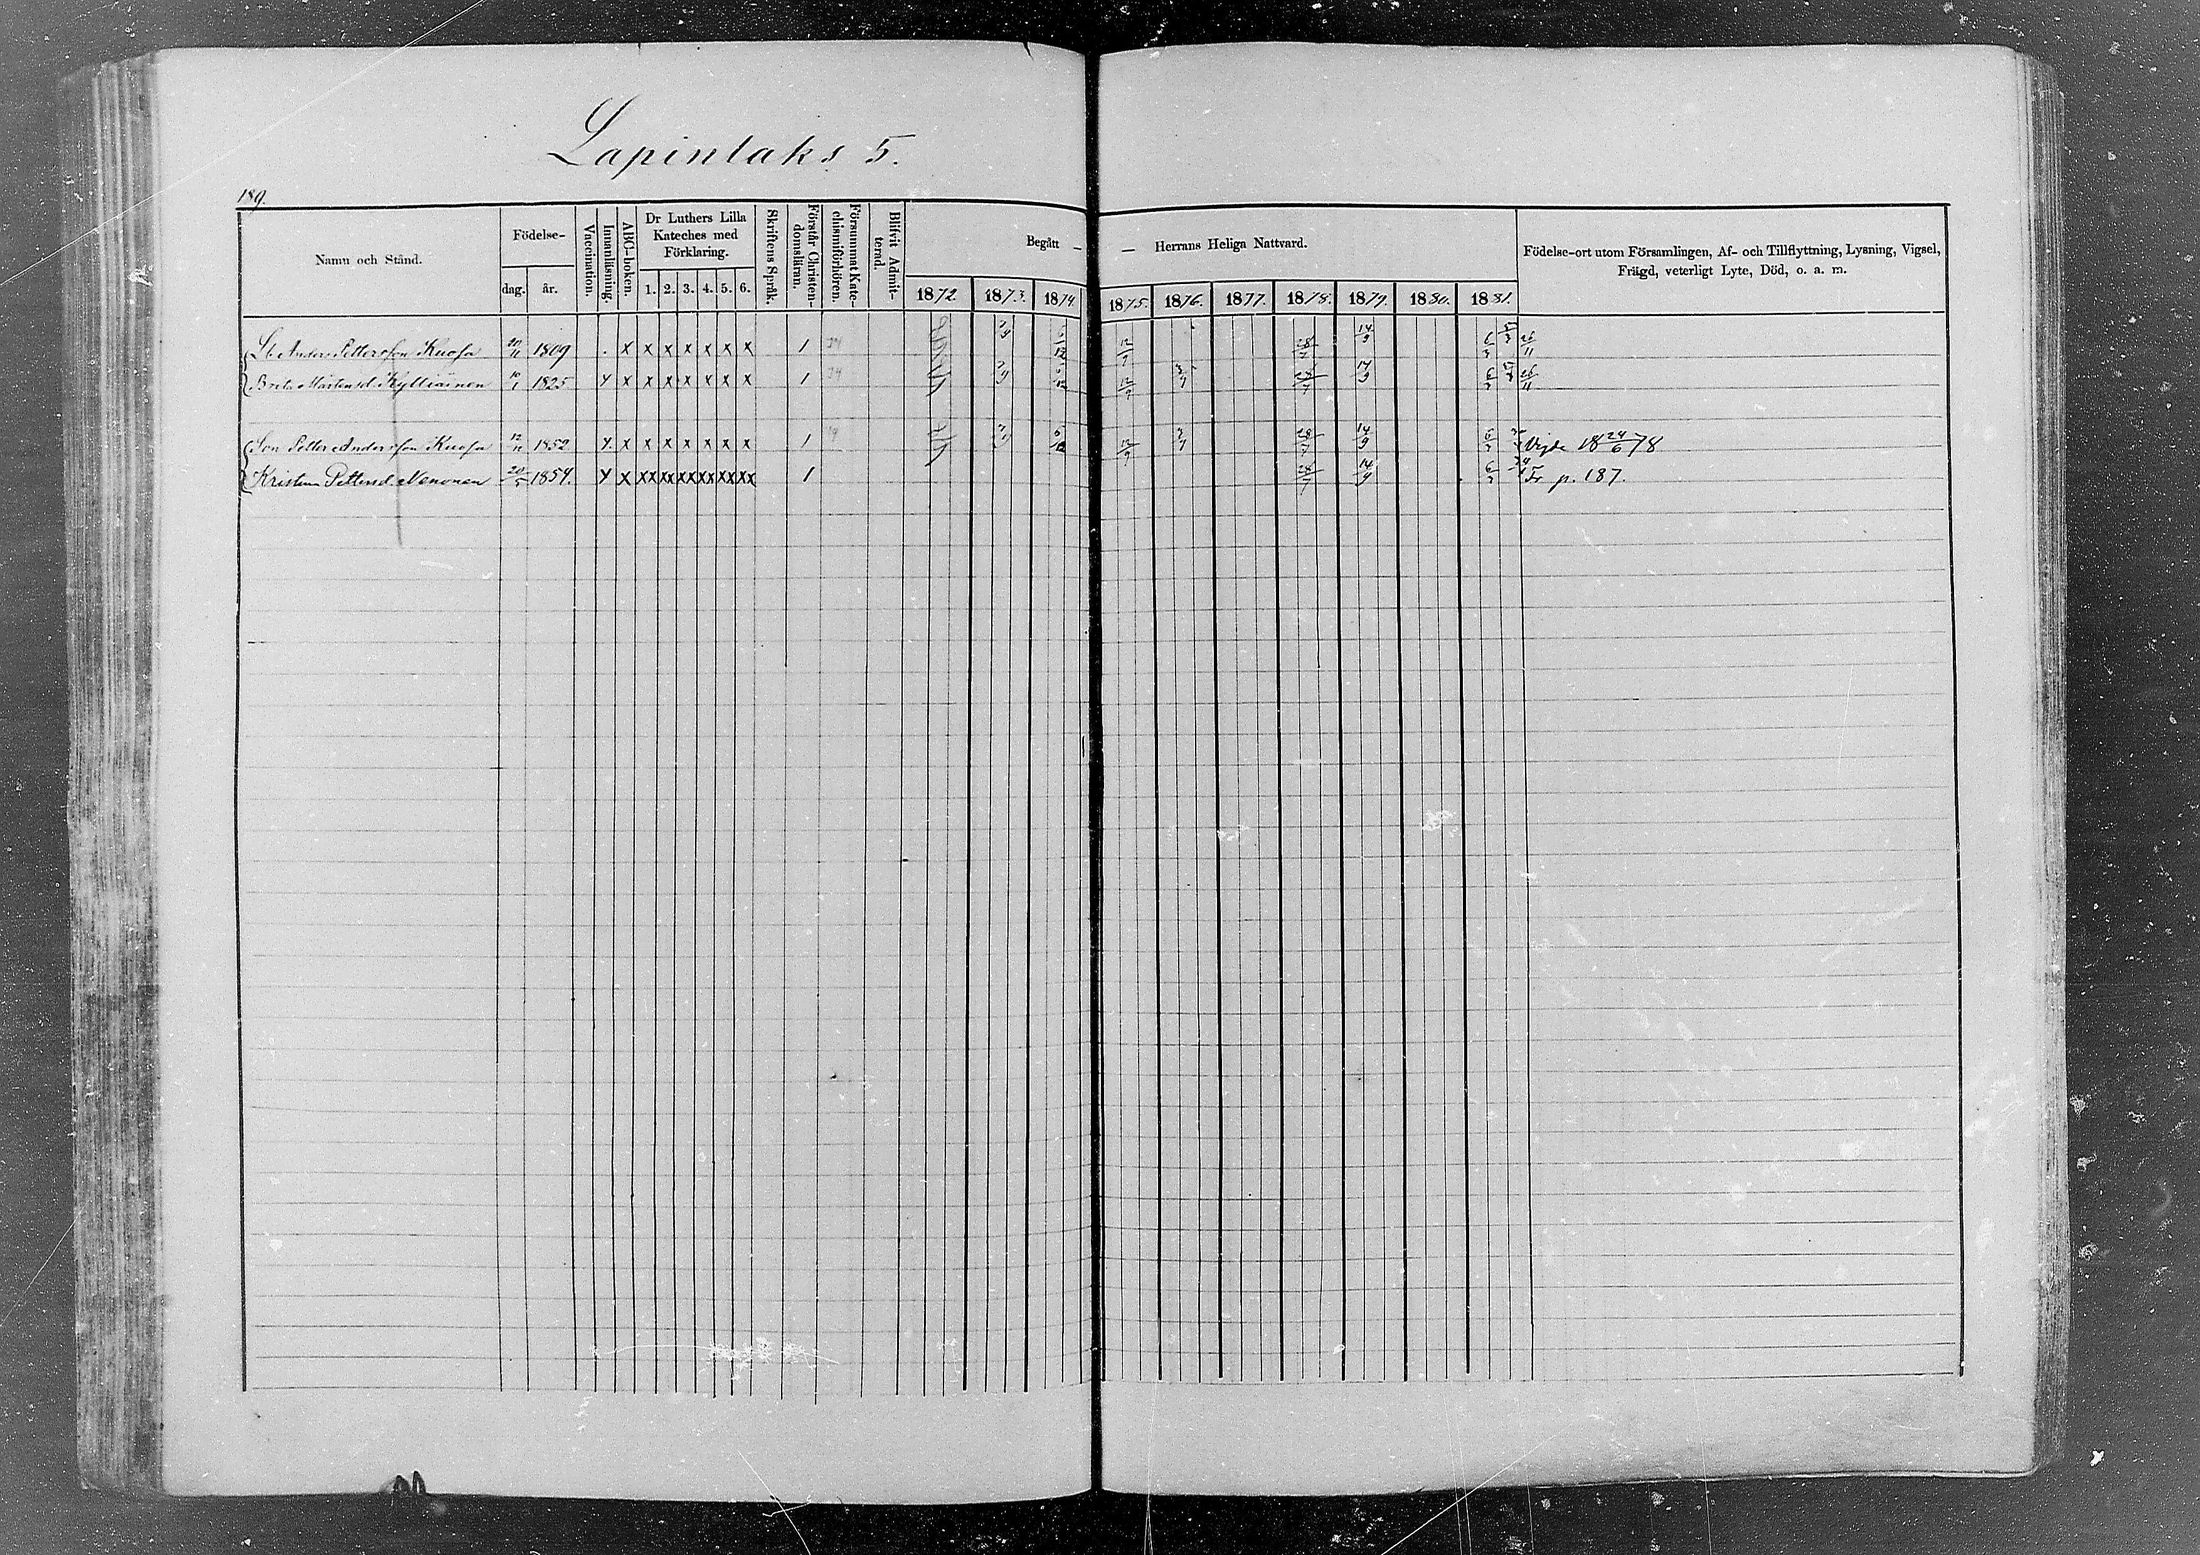 Lapinlaks 5.
189.
Namn och Stånd. Födelse- dag. år. Vaccination. Innanläsning. ABC-boken. Dr Luthers Lilla Kateches med Förklaring. 1. 2. 3. 4. 5. 6. Skriftens Språk. Förstår Christendomsläran. Försummat Katechismiförhören. Blifvit Admitterad. Begått — — Herrans Heliga Nattvard. 1872. 1873. 1874. 1875. 1876. 1877. 1878. 1879. 1880. 1881. Födelse-ort utom Församlingen, Af- och Tillflyttning, Lysning, Vigsel, Frägd, veterligt Lyte, Död, o. a. m.
Anders Pettersson Kuosa 1809 x x x x x x x 1 12/9 28/7 14/9 26/11
Brita Mårtensd. Kylliäinen 10/1 1825 x x x x x x x 1 12/9 28/7 14/9 26/11
Son Petter Andersson Kuosa 12/11 1852 x x x x x x x 1 12/9 28/7 14/9 Vigde 18 24/6 78
Pettersd. Nenonen 1854. x xx xx xx xx xx xx 1 28/7 14/9 Fr p. 187.